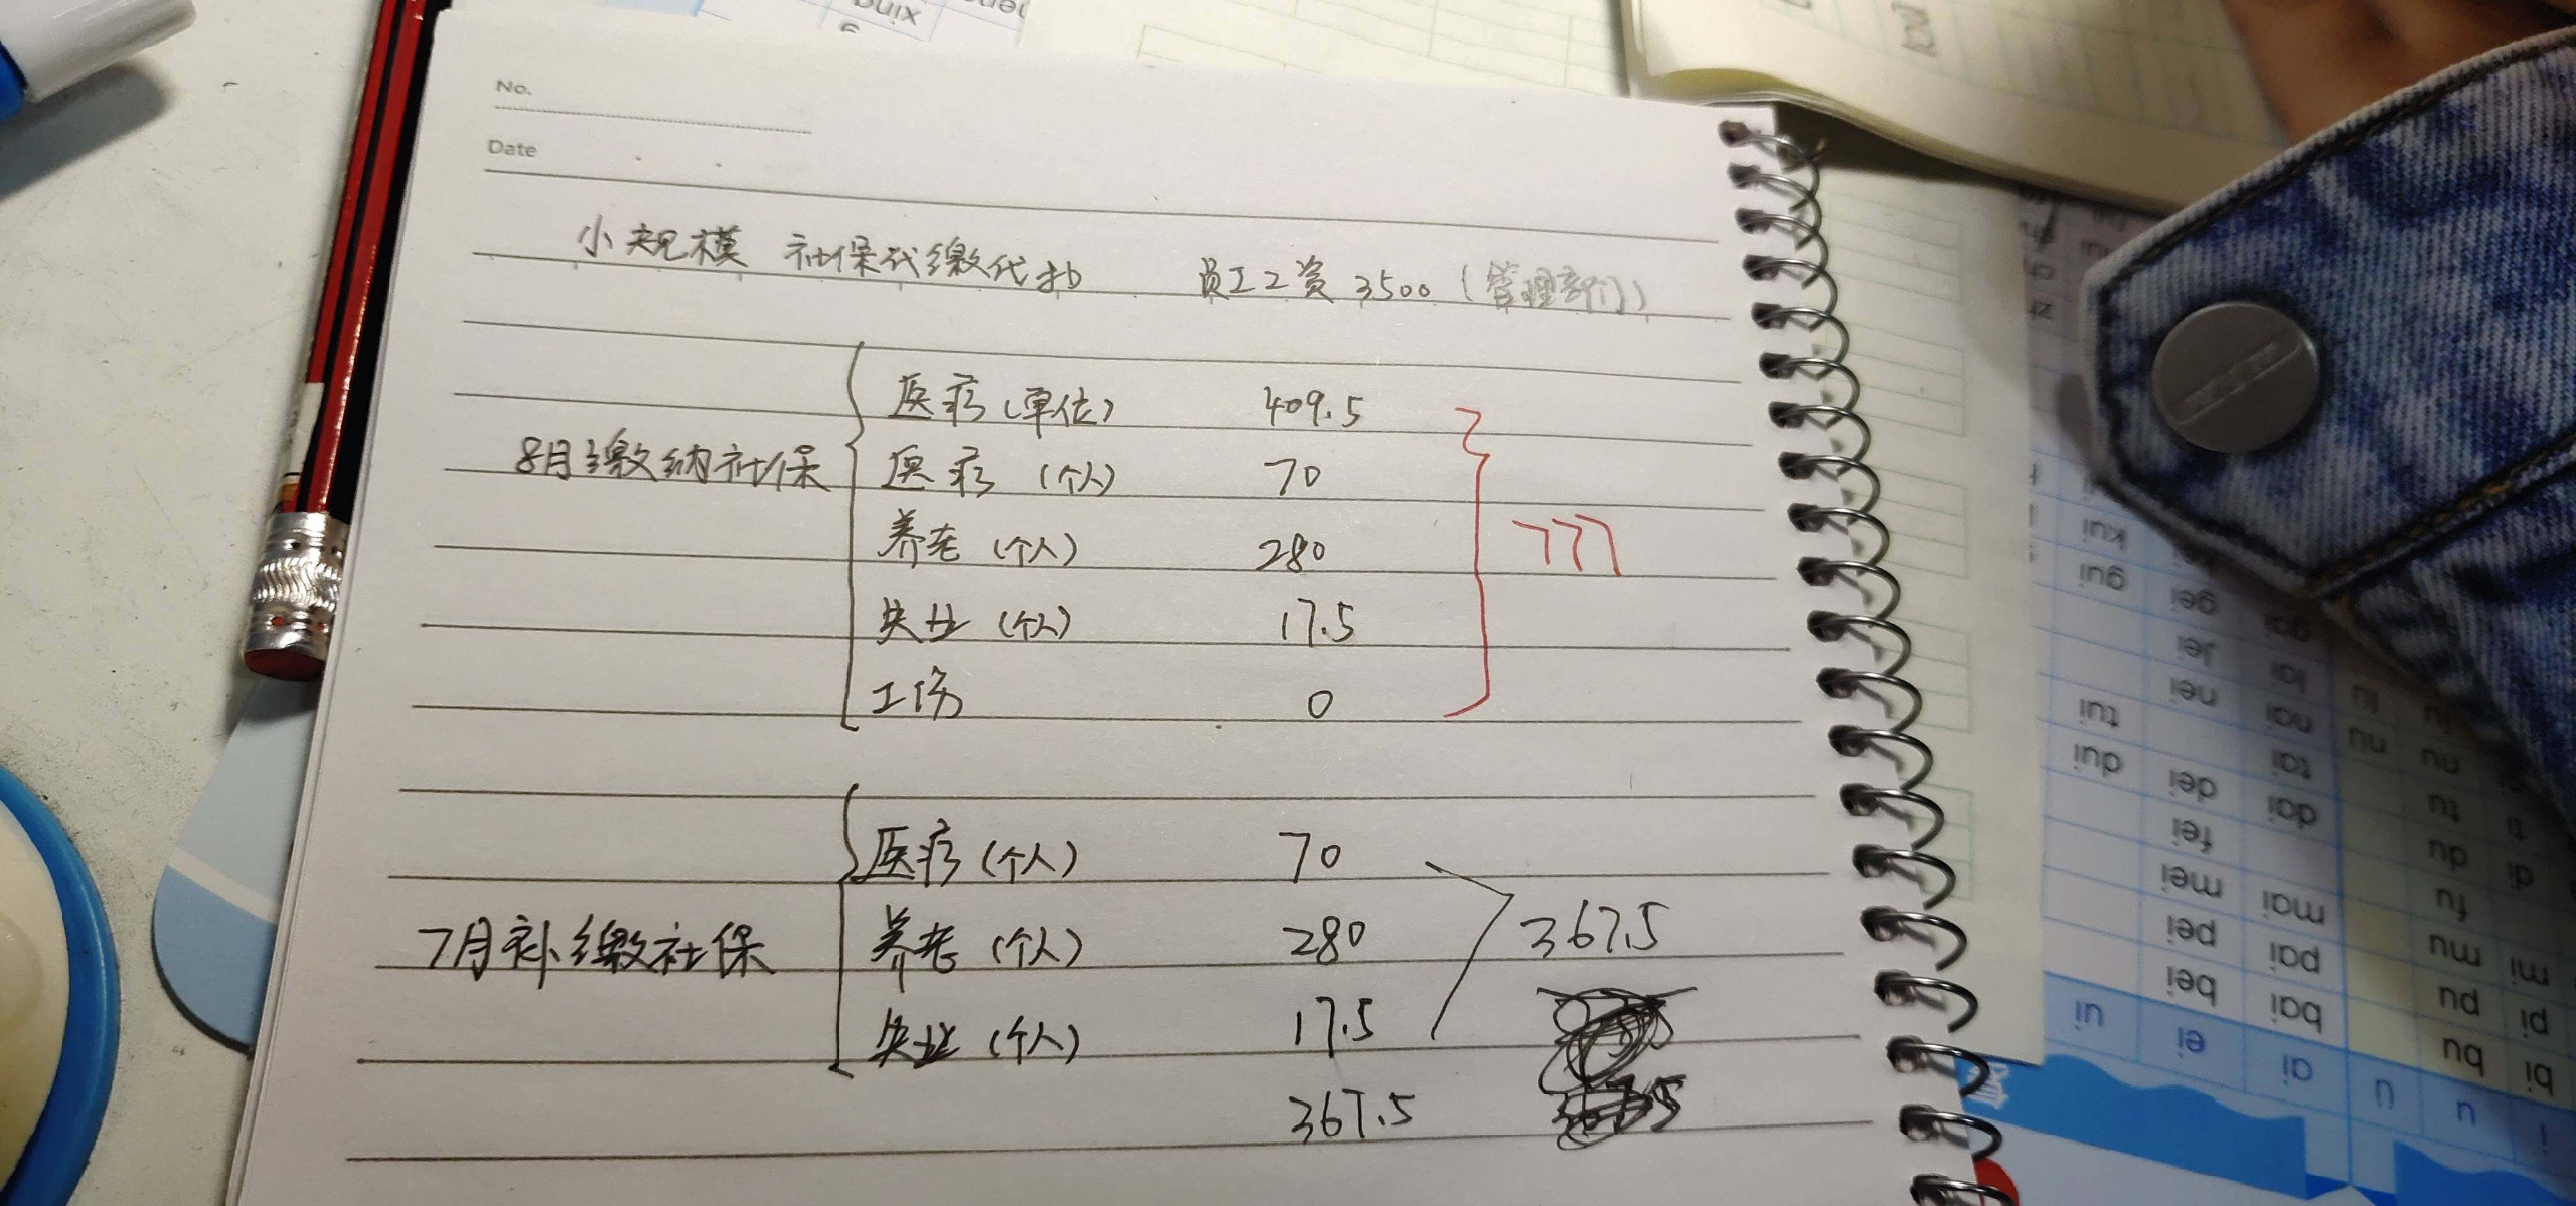 No.
Date
小规模 社保代缴代扣 员工工资 3500 (管理部门)
医疗 (单位) 409.5
8月缴纳社保 医疗 (个人) 70
养老 (个人) 280 777
失业 (个人) 17.5
工伤 0
医疗 (个人) 70
7月补缴社保 养老 (个人) 280 367.5
失业 (个人) 17.5
367.5
xing
kui
gui gei
lei
nei nai
tui tai
dui dei dai
fei
mei mai
pei pai
bei bai
ui ei ai
nu
tu
du
fu
mu
pu
bu
u
ü
mi
pi
bi
i